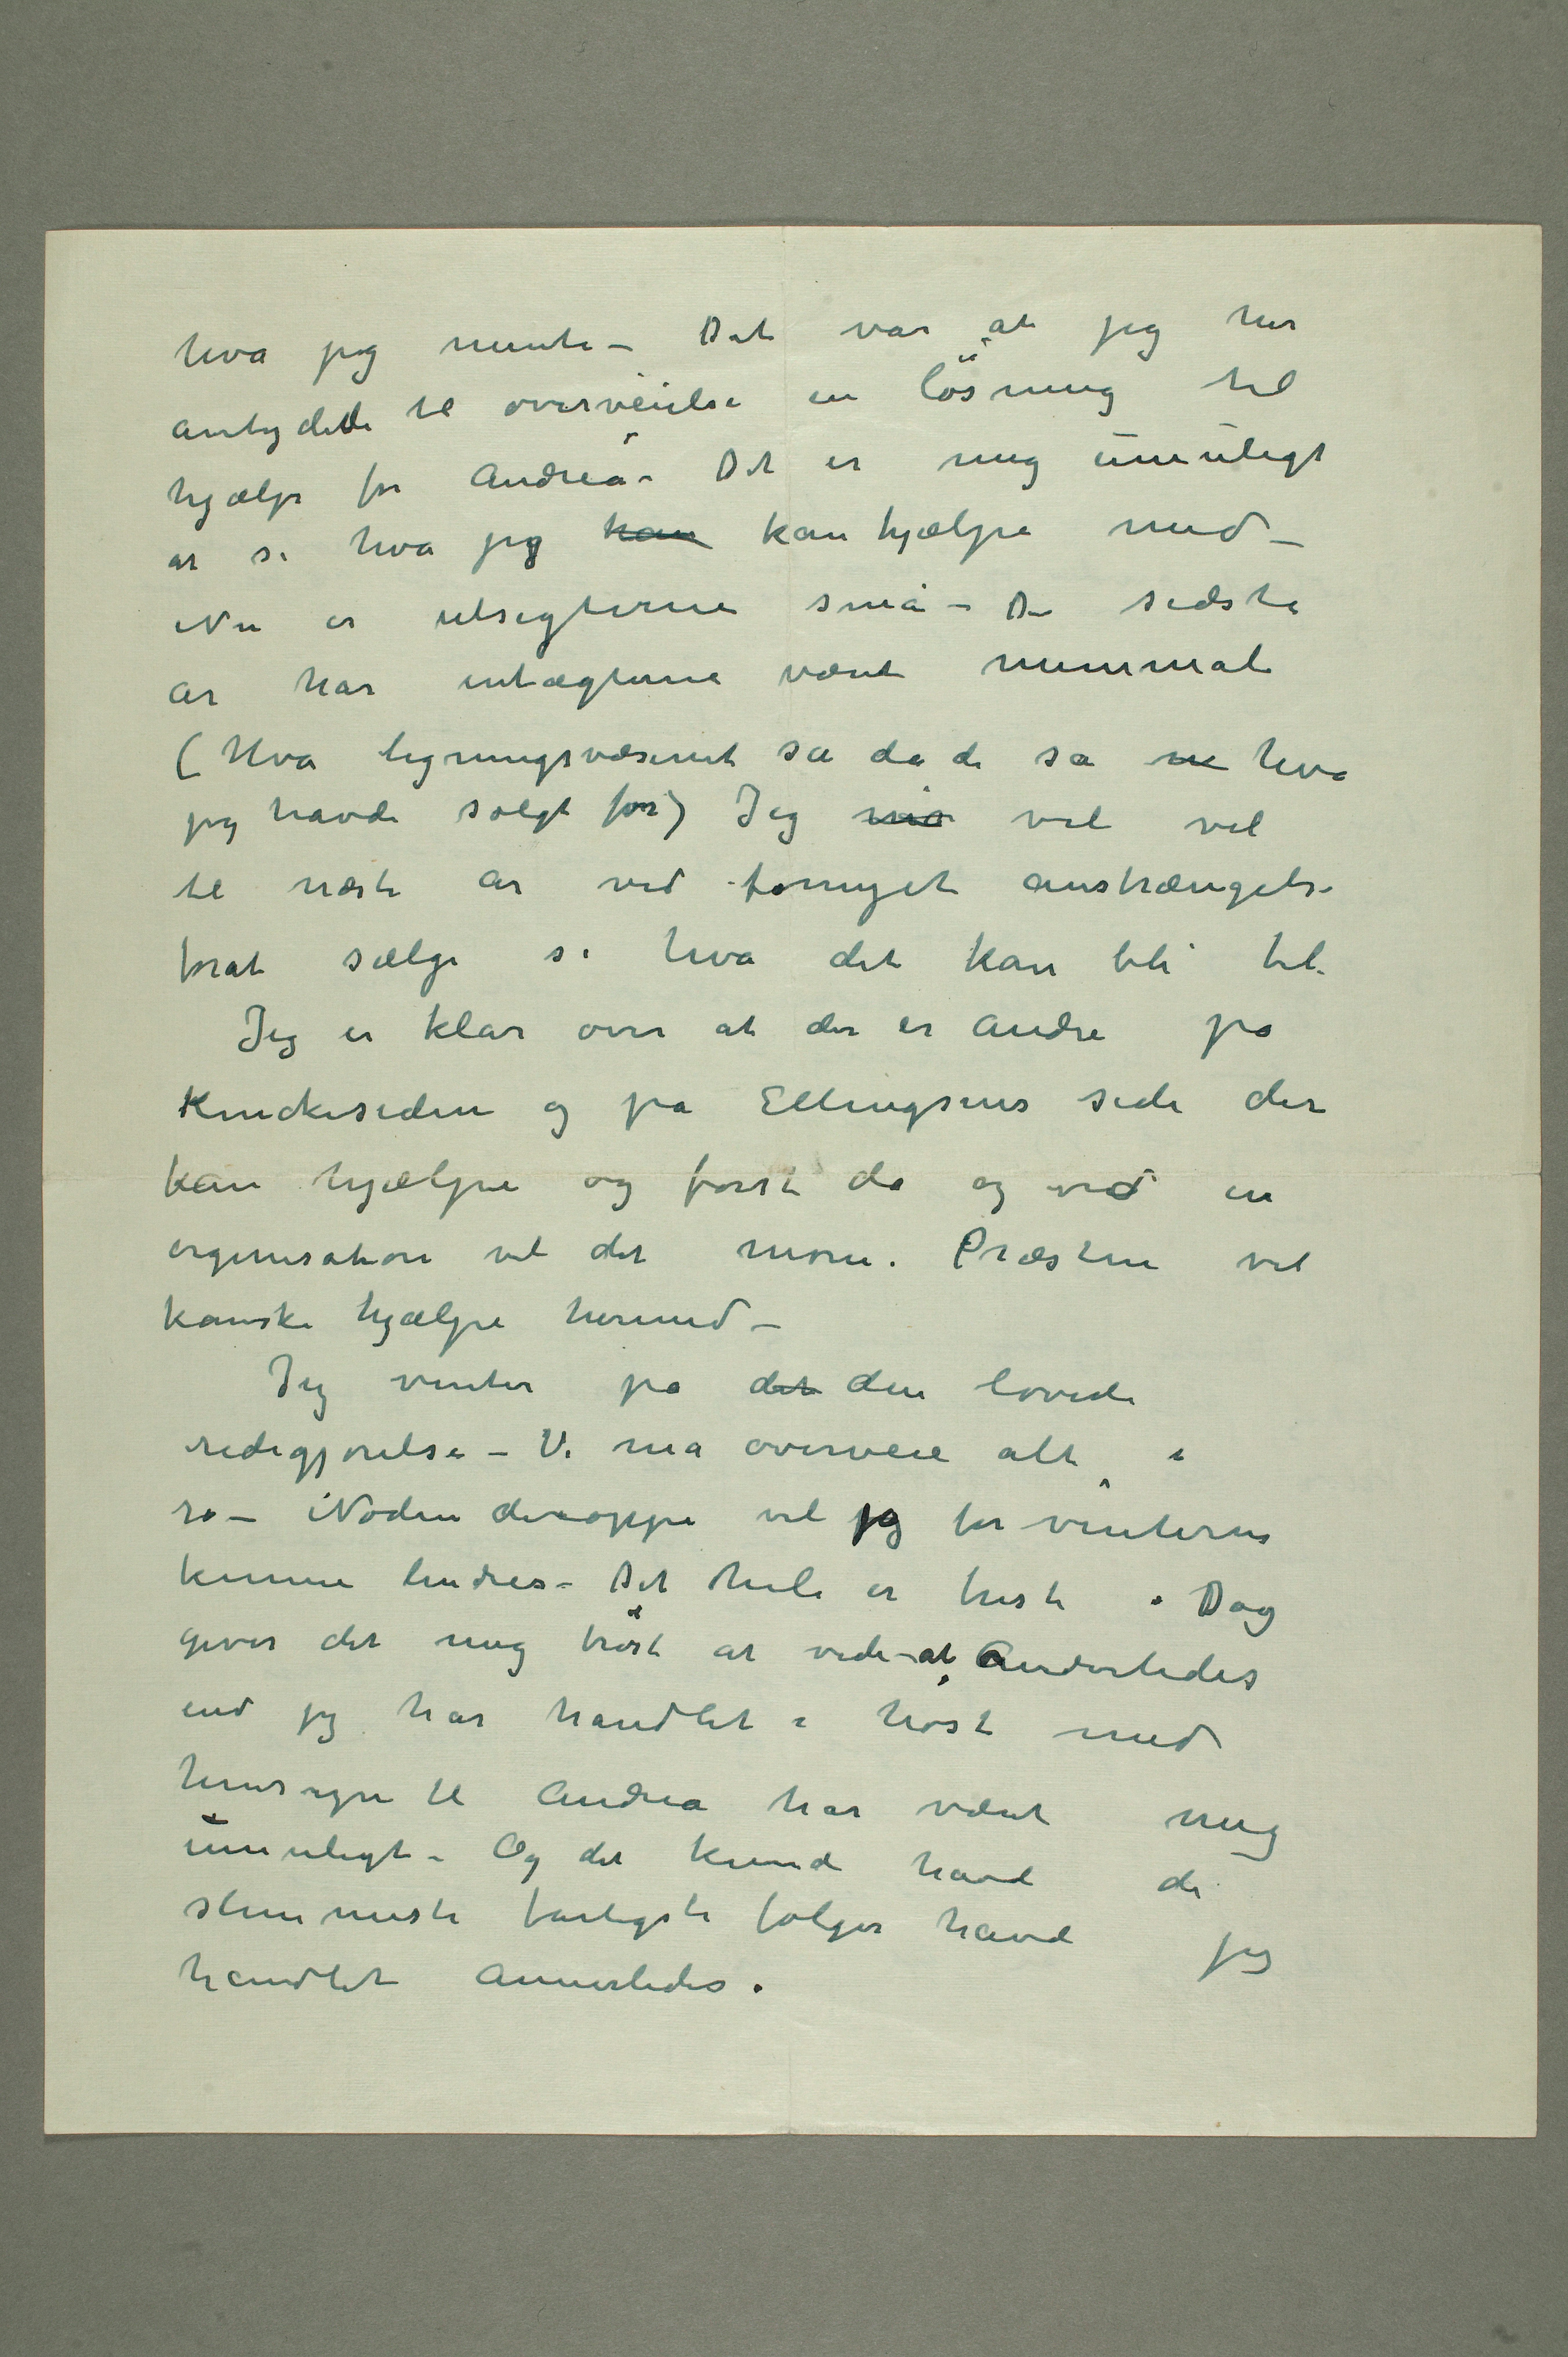 hva jeg mente – Det var at jeg her
antydede til overveielse en lösning til
hjælp for Andrea – Det er mig umuligt
at se hva jeg kan kan hjælpe med –
Nu er utsigterne små – De sidste
år har intægterne været minimale
(Hva ligningsvæsenet sa da de sa hva
jeg havde solgt for) Jeg vil vel
til næste år ved fornyet anstrængelse
forat sælge se hva det kan bli til
Jeg er klar over at der er andre på
Kinckesiden og på Ellingsens side der
kan hjælpe og först da og ved en
organisation vil det monne. Præsten vil
kanske hjælpe hermed –
Jeg venter på det den lovede
redegjörelse – Vi må overveie alt i
ro – Nöden deroppe vil jeg for vinteren
kunne lindres – Det hele er trist. Dog
giver det mig tröst at vide at Anderledes
end jeg har handlet i höst med
hensyn til Andrea har været mig
umuligt – Og det kunde havd de
slemmeste farligste fölger havd jeg
handlet annerledes.